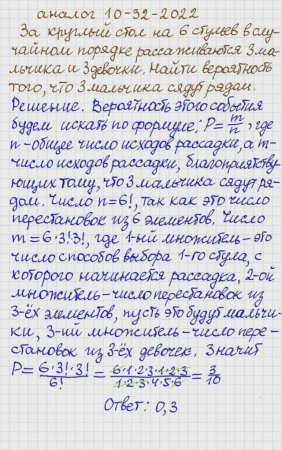 аналог 10-32-2022
За круглый стол на 6 стульев в слу-
чайном порядке рассаживаются 3 маль-
чика и 3 девочки. Найти вероятность
того, что 3 мальчика сядут рядом.
Решение. Вероятность этого события
будем искать по формуле: P=m/n, где
n-общее число исходов рассадки, а m-
число исходов рассадки, благоприятству-
ющих тому, что 3 мальчика сядут ря-
дом. Число n=6!, так как это число
перестановок из 6 элементов. Число
m=6·3!·3!, где 1-ый множитель-это
число способов выбора 1-го стула, с
которого начинается рассадка, 2-ой
множитель-число перестановок из
3-ёх элементов, пусть это будут мальчи-
ки, 3-ий множитель-число пере-
становок из 3-ёх девочек. Значит
P= 6·3!·3!/6! = 6·1·2·3·1·2·3/1·2·3·4·5·6 = 3/10
Ответ: 0,3